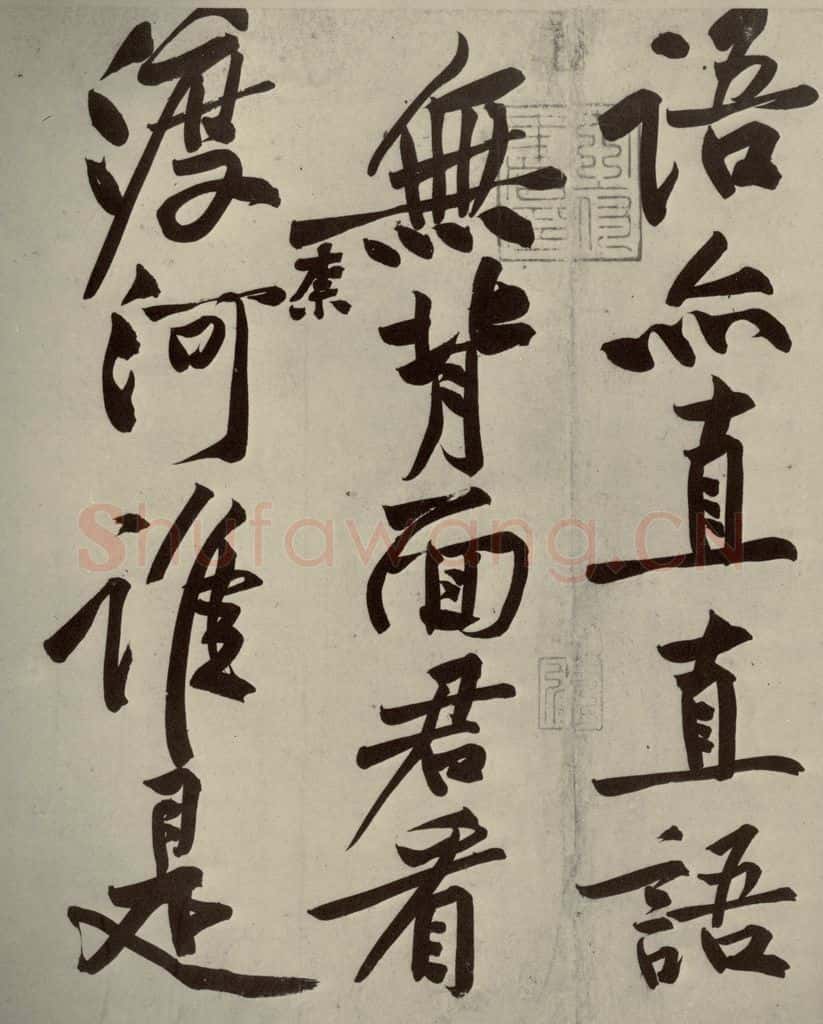 語亦直直語
無背面君看
渡柰河誰是
Shufawang.CN